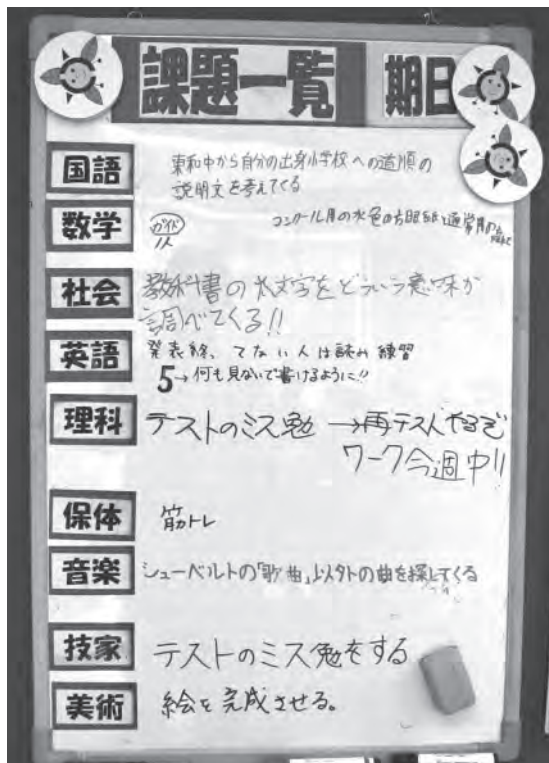 課題一覧 期日
国語 東和中から自分の出身小学校への道順の
説明文を考えてくる
数学 ガイド コンクール用の水色の方眼紙と通常用の
社会 教科書の太文字をどういう意味か
調べてくる!!
英語 発表会、でない人は読み練習
5→何も見ないで書けるように!!
理科 テストのミス勉→再テストやるぞ
ワーク今週中!!
保体 筋トレ
音楽 シューベルトの「歌曲」以外の曲を探してくる
技家 テストのミス勉をする
美術 絵を完成させる。